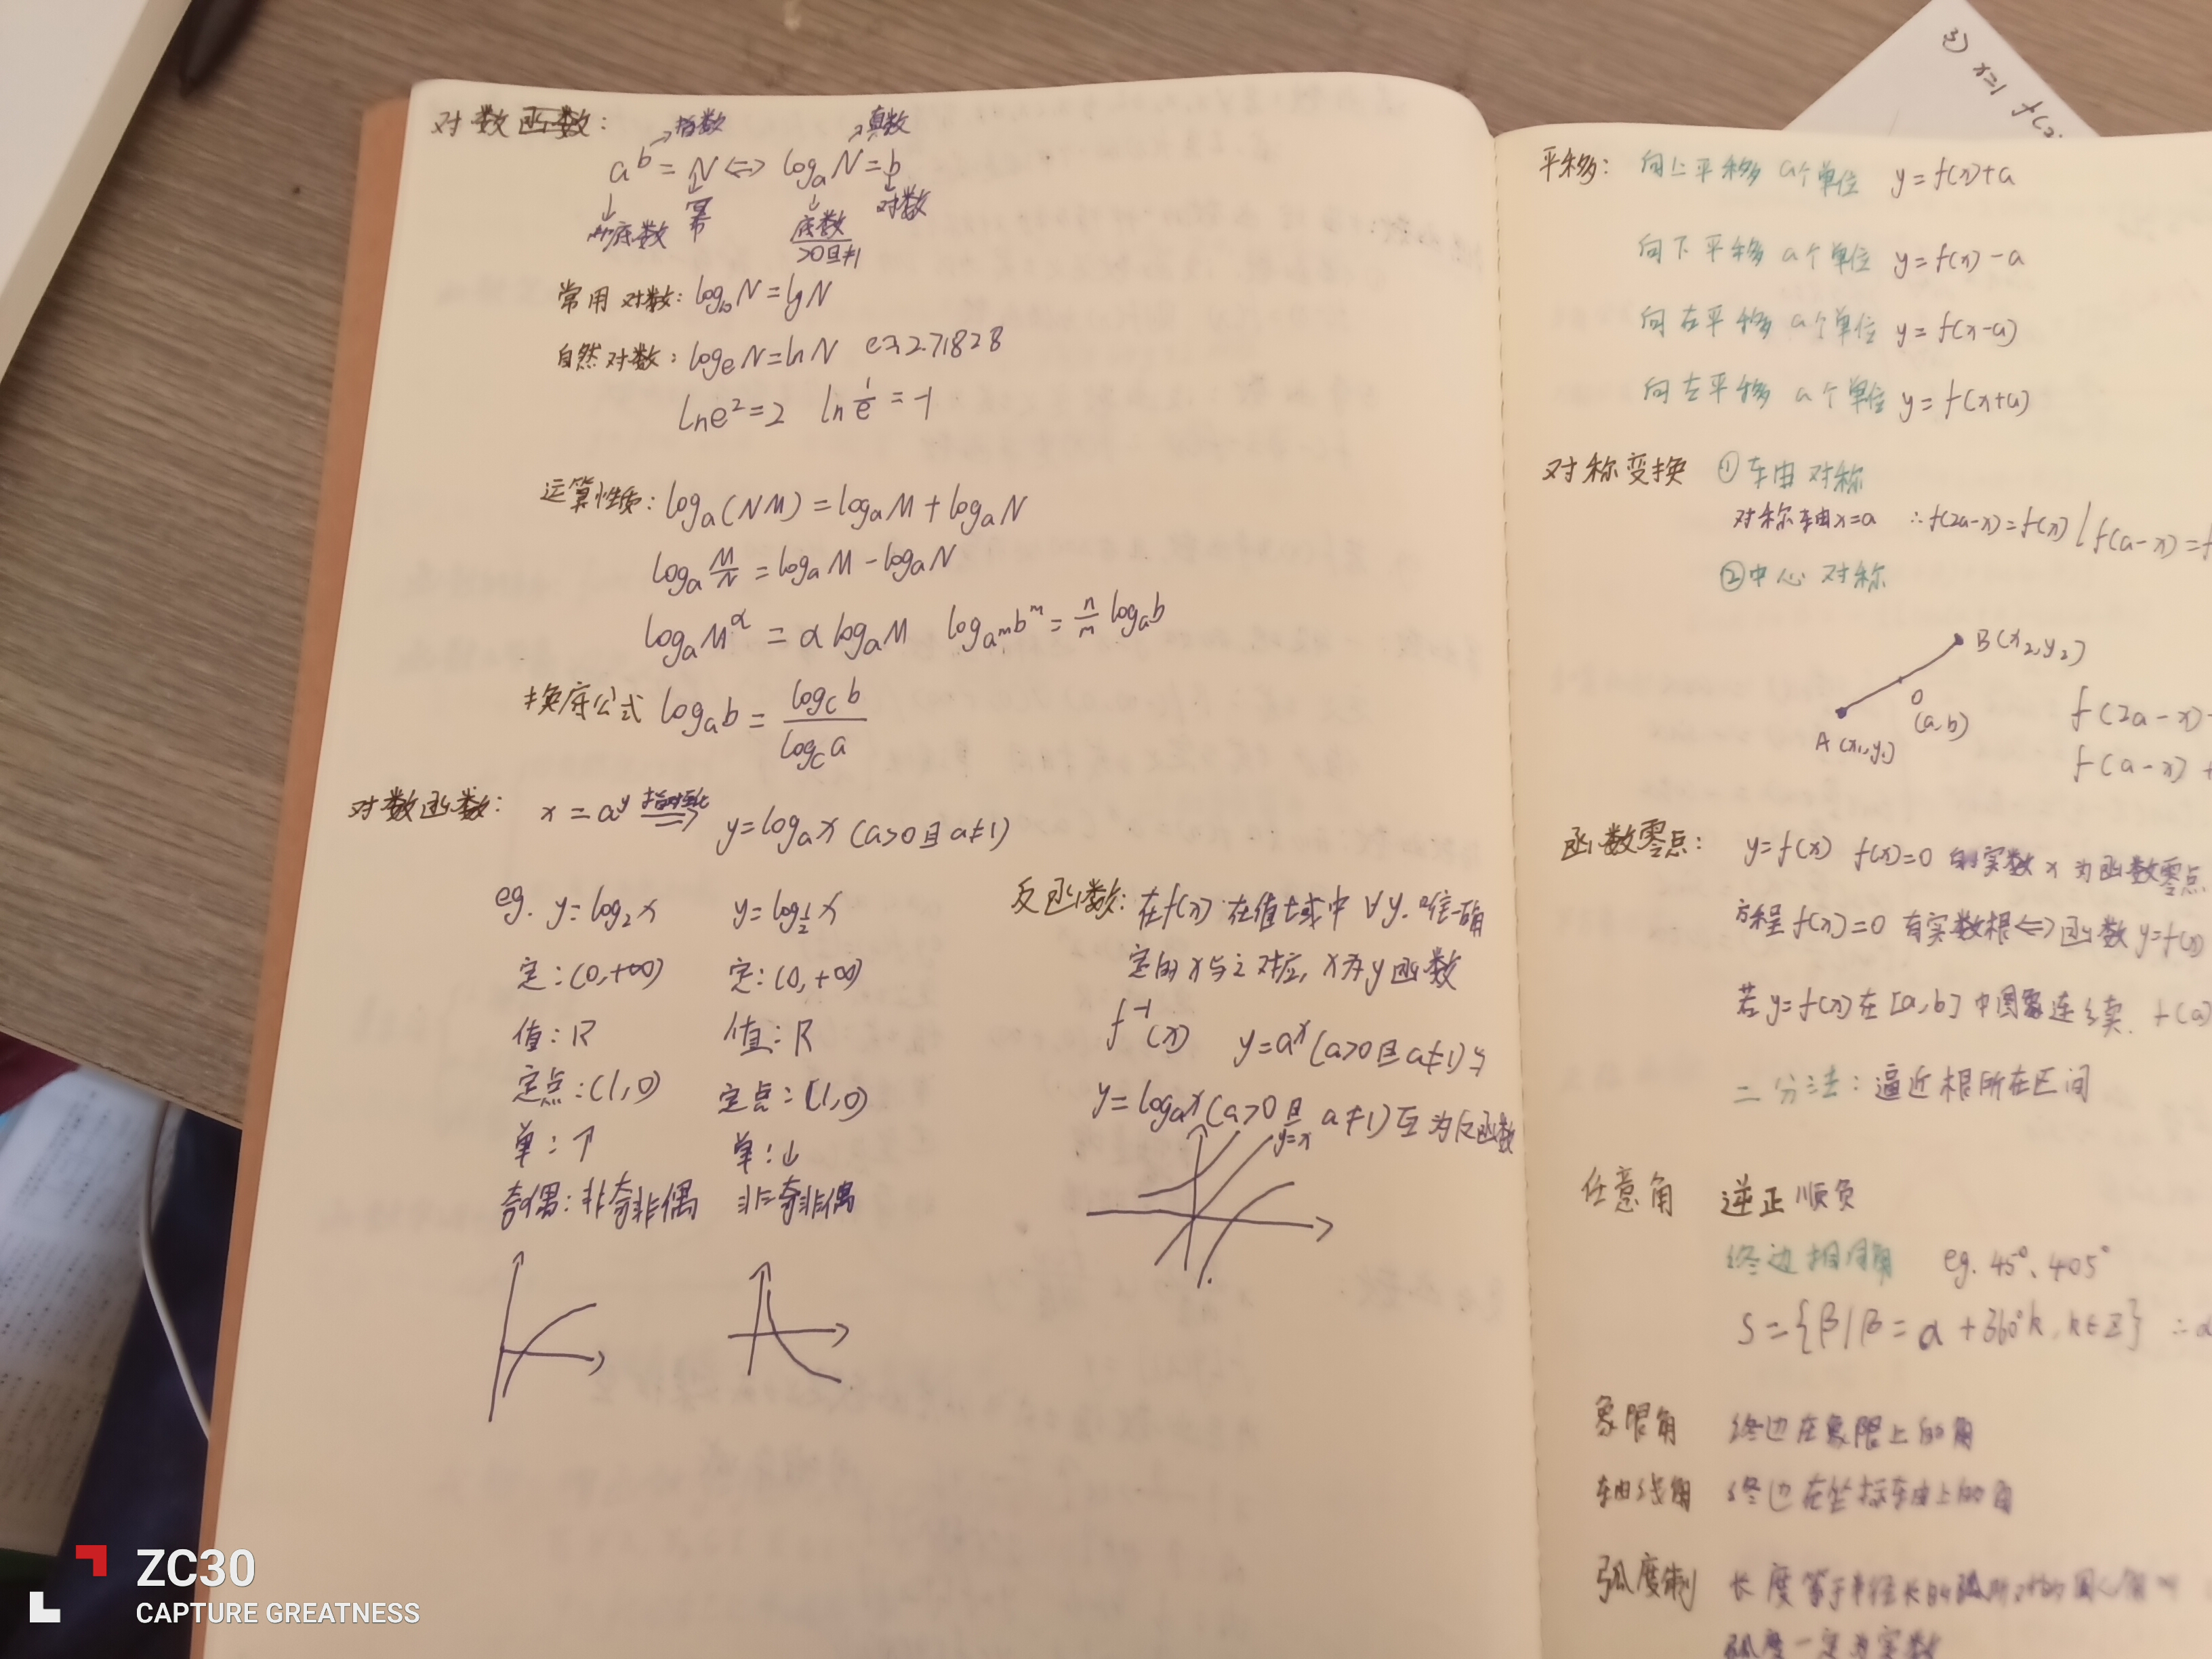 对数函数:
指数 真数
a^b = N ⇔ log_a N = b
底数 幂 底数 对数
>0且≠1
常用对数: log_10 N = lgN
自然对数: log_e N = lnN e≈2.71828
lne² = 2 ln 1/e = -1
运算性质: log_a(NM) = log_a M + log_a N
log_a M/N = log_a M - log_a N
log_a M^α = α log_a M log_a^m b^m = n/m log_a b
换底公式 log_a b = log_c b / log_c a
对数函数: x = a^y ⇒ y = log_a x (a>0且a≠1)
eg. y = log_2 x y = log_1/2 x
定: (0,+∞) 定: (0,+∞)
值: R 值: R
定点: (1,0) 定点: (1,0)
单: ↑ 单: ↓
奇偶: 非奇非偶 非奇非偶
反函数: 在f(x) 在值域中 ∀y. 唯一确
定的x与之对应, x为y函数
f^-1(x) y = a^x (a>0且a≠1)与
y = log_a x (a>0且a≠1)互为反函数
y=x
3) x=1
平移: 向上平移 a个单位 y = f(x)+a
向下平移 a个单位 y = f(x)-a
向右平移 a个单位 y = f(x-a)
向左平移 a个单位 y = f(x+a)
对称变换 ①轴对称
对称轴x=a ∴f(2a-x)=f(x) / f(a-x)=f
②中心对称
B(x₂,y₂)
O
(a,b)
A(x₁,y₁)
f(2a-x)
f(a-x) +
函数零点: y=f(x) f(x)=0 的实数x为函数零点
方程f(x)=0 有实数根⇔函数y=f(x)
若y=f(x)在[a,b]中图象连续. f(a)
二分法: 逼近根所在区间
任意角 逆正顺负
终边相同角 eg. 45°、405°
S={β|β=α+360°k, k∈Z} ∴α
象限角 终边在象限上的角
轴线角 终边在坐标轴上的角
弧度制 长度等于半径长的弧所对的圆心角
弧度一定为实数
ZC30
CAPTURE GREATNESS